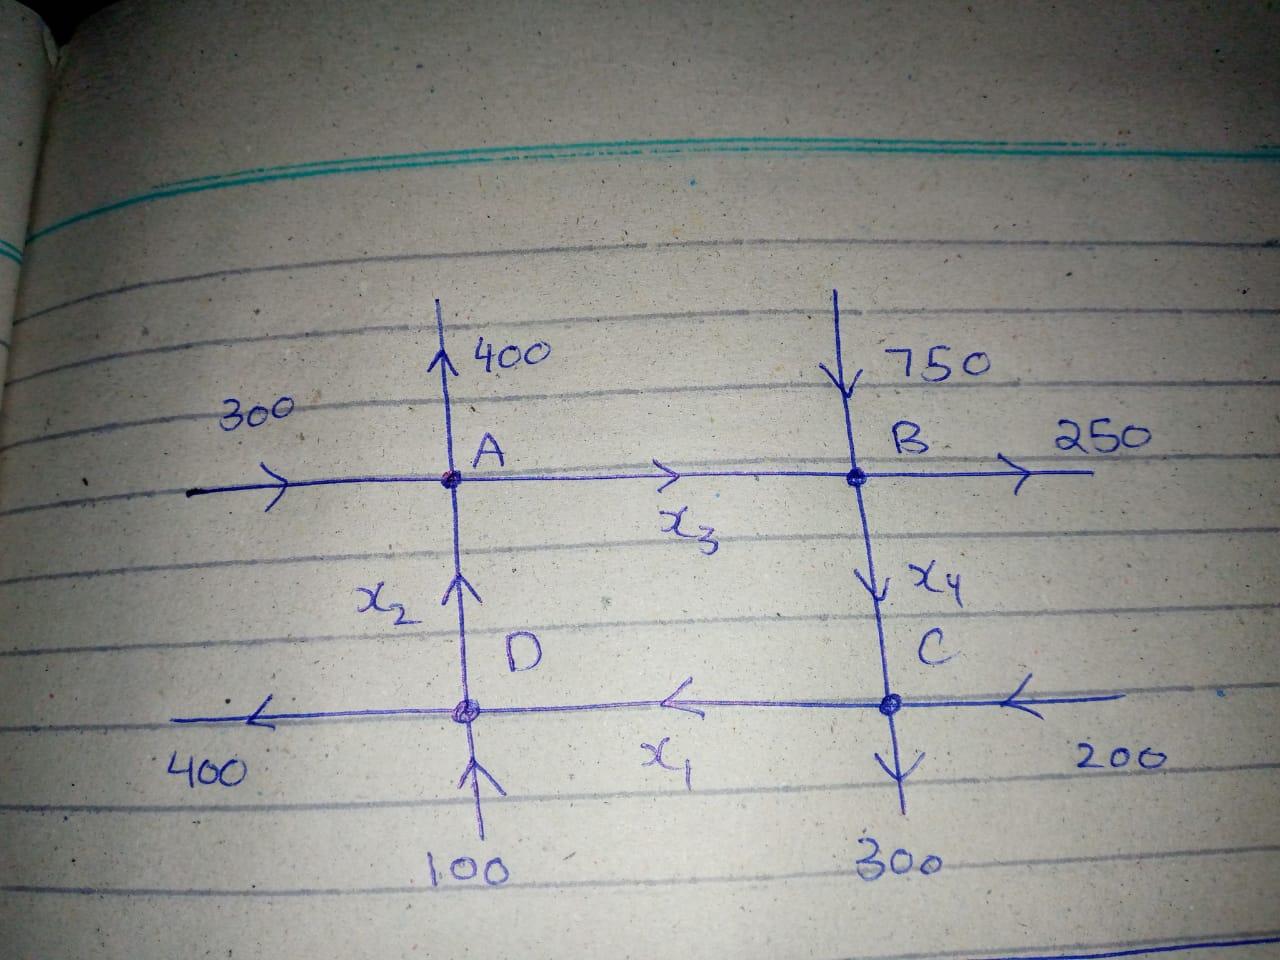 400
750
300
A
B
250
x₃
x₂
x₄
D
C
400
x₁
200
100
300